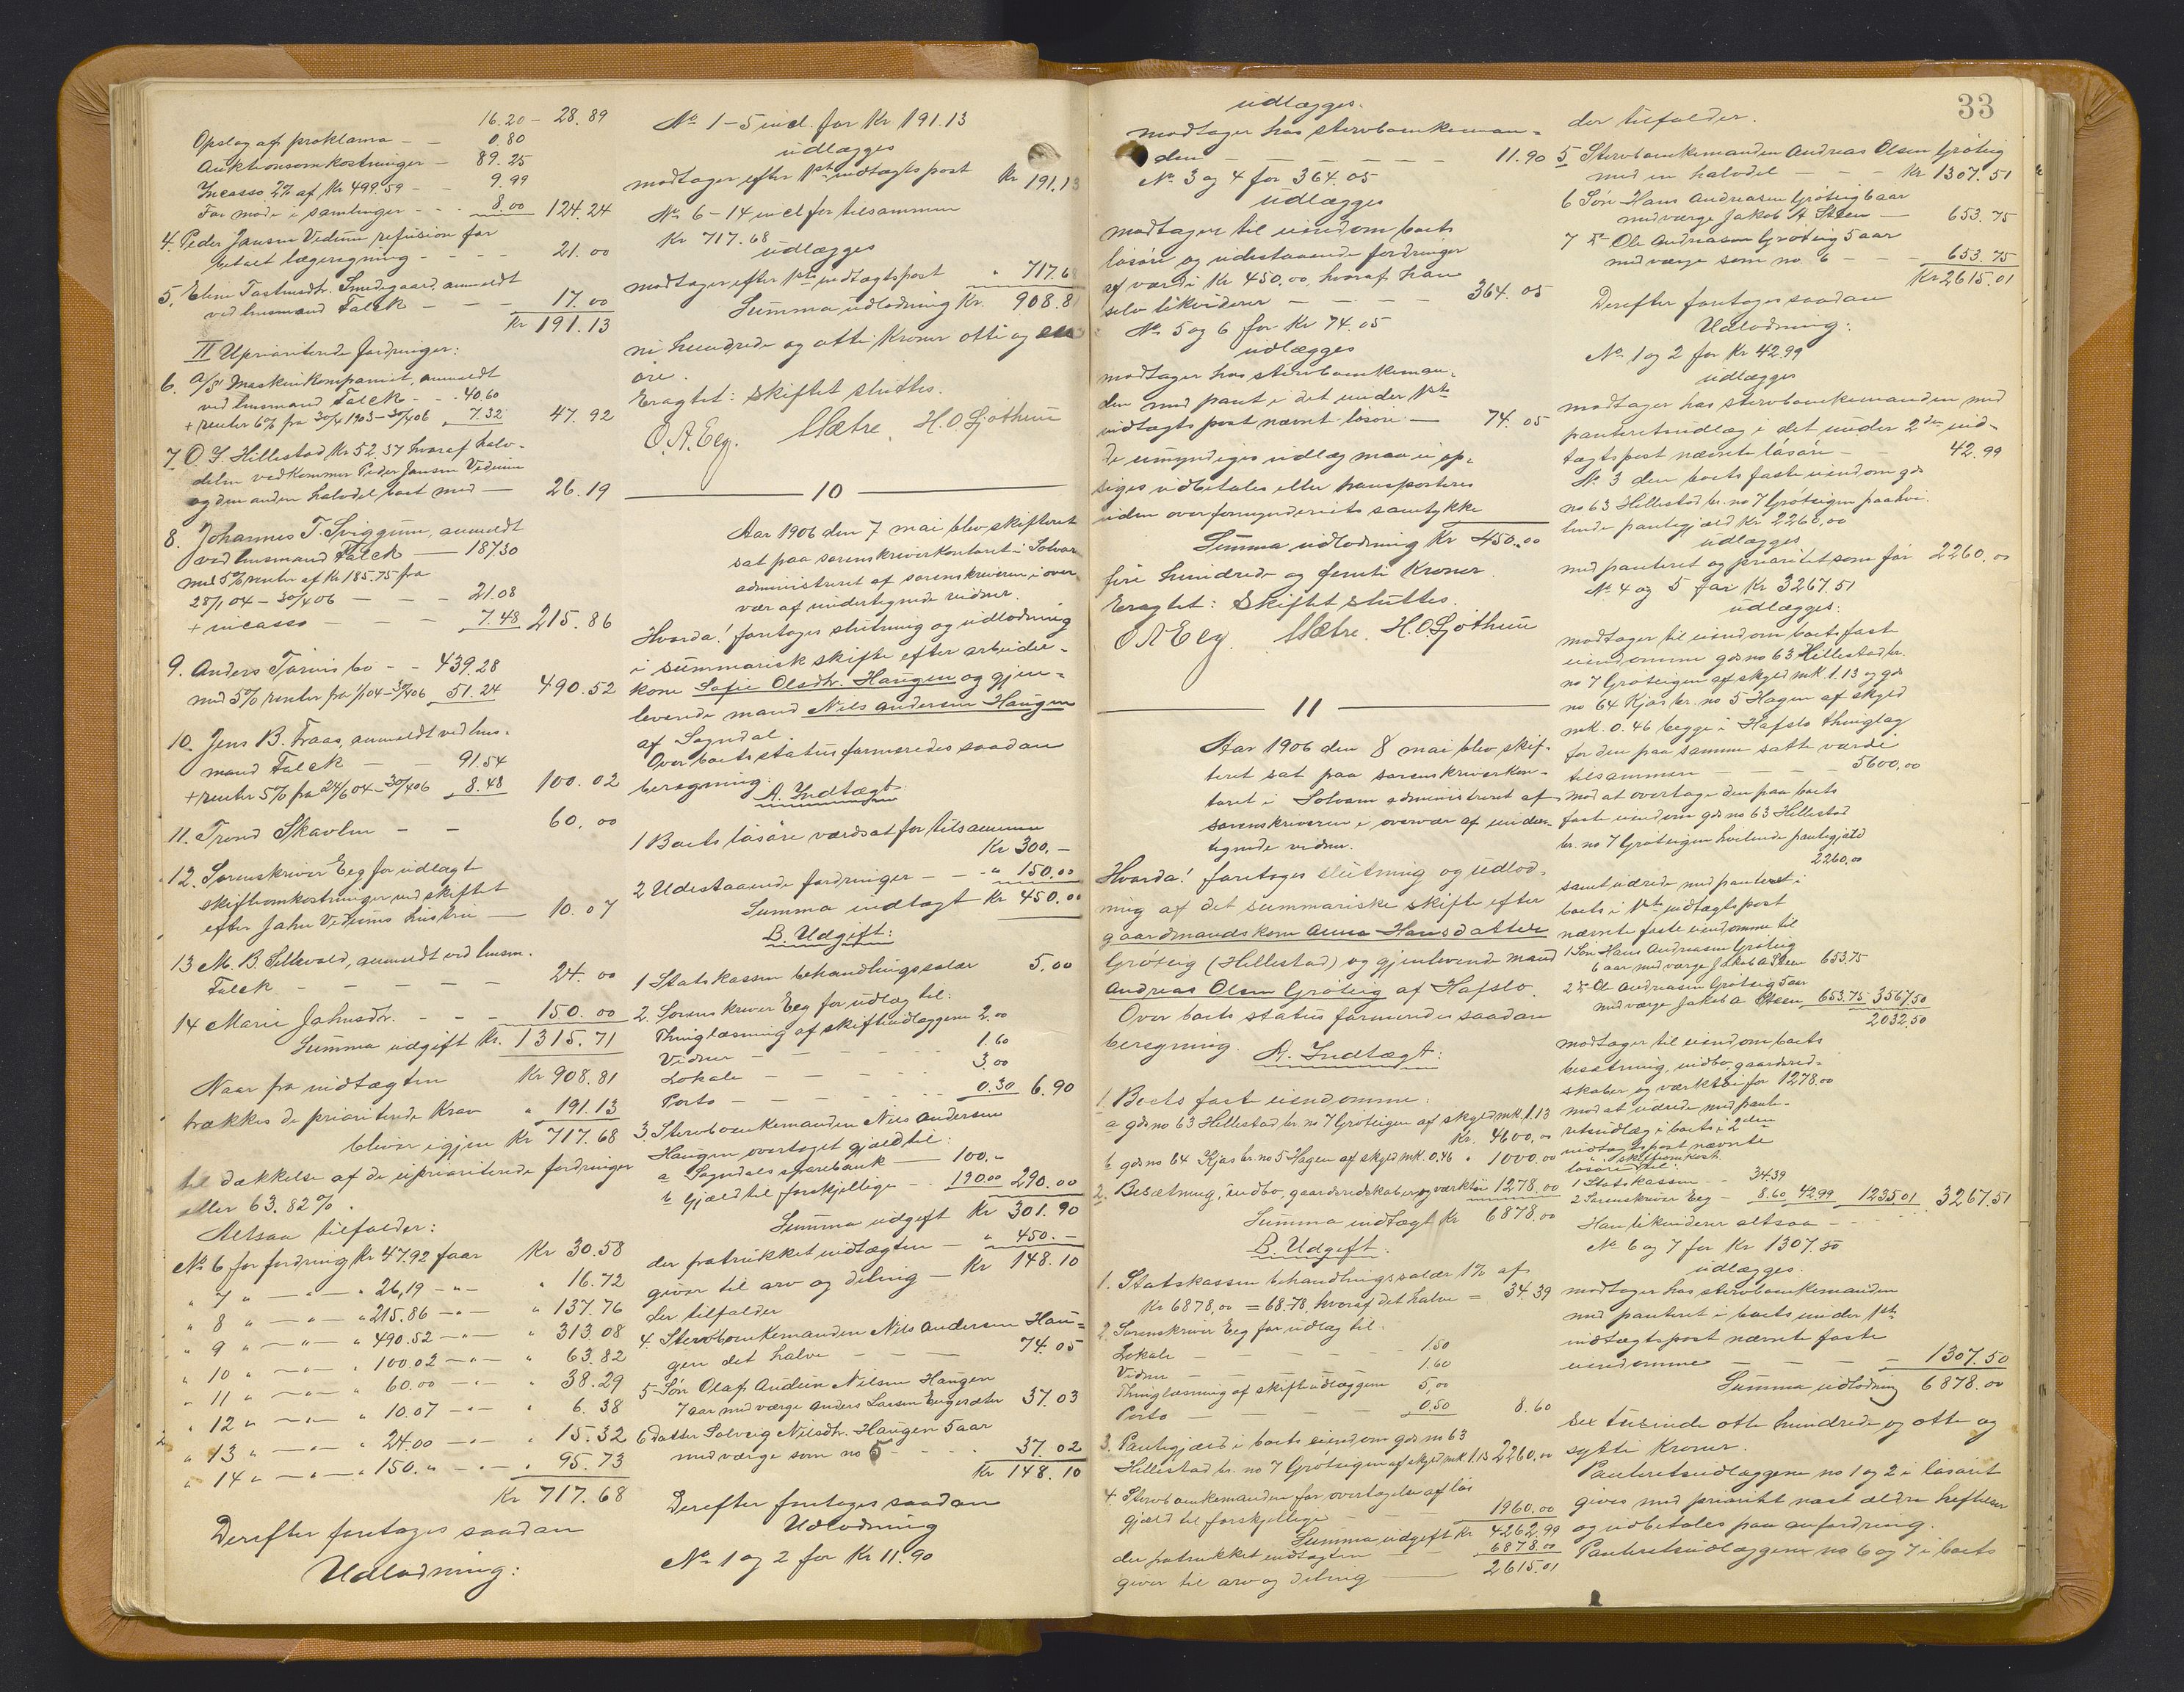 16.20 – 28.89
Opslag af proklama — — 0.80
Auktionsomkostninger — 89.25
Incasso 2% af Kr 499.59 — — 9.99
For møde i samlinger - - - 8.00 124.24
4. Peder Jansen Vedum refusion for
betalt lægeregning - - - - 21.00
5. Eline Tastensdtr. Smedegaard, anmeldt
ved lensmand Falck — — — 17.00
Kr 191.13
II Uprioriterede fordringer:
6. A/S Maskinkompaniet, anmeldt
ved lensmand Falck - - - 40.60
+ renter 6% fra 30/4 1903 – 30/4 06 7.32 47.92
7. O. J. Hillestad Kr 52.37 hvoraf halv-
delen vedkommer Peder Jansen Vedum
og den anden halvdel boet med — 26.19
8. Johannes T. Sviggum, anmeldt
ved lensmand Falck — 187.30
med 5% renter af Kr 185.75 fra
28/1 04 – 30/4 06 — — — 21.08
+ incasso — — — 7.48 215.86
9. Anders Tørvis bo - - 439.28
med 5% renter fra 1/1 04 – 30/4 06 51.24 490.52
10. Jens B. Fraas, anmeldt ved lens-
mand Falck — — 91.54
+ renter 5% fra 24/6 04 – 30/4 06 8.48 100.02
11. Trond Skavlen - — 60.00
12. Sorenskriver Eeg for udlagt
skifteomkostninger ved skiftet
efter Jahn Vedums hustru — 10.07
13 M. B. Sellevold, anmeldt ved lensm.
Falck — — — — — 24.00
14 Marie Jahnsdtr. - - - 150.00
Summa udgift Kr. 1315.71
Naar fra indtægten Kr 908.81
trækkes de prioriterede Krav " 191.13
bliver igjen Kr 717.68
til dækkelse af de uprioriterede fordringer
eller 63.82%.
Altsaa tilfalder:
No 6 for fordring Kr 47.92 faar Kr 30.58
" 7 " — " — " 26,19 — " — " 16.72
" 8 " — " — " 215.86 — " — " 137.76
" 9 " — " — " 490.52 — " — " 313.08
" 10 " — " — " 100.02 — " — " 63.82
" 11 " — " — " 60.00 — " — " 38.29
" 12 " — " — " 10.07 — " — " 6.38
" 13 " — " — " 24.00 — " — " 15.32
" 14 " — " — " 150. " — " — " 95.73
Kr 717.68
Derefter foretages saadan
Udlodning:
No 1 – 5 incl. for Kr 191.13
udlægges
modtages efter 1ste indtægtspost Kr 191.13
No 6 – 14 incl for tilsammen
Kr 717.68
udlægges
modtages efter 1ste indtægtspost " 717.6
Summa udlodning Kr. 908.8
ni hundrede og otte Kroner otti og en
øre.
Eragtet: Skiftet sluttes.
O. A. Eeg. Sætre. H. O. Ljøthun
10
Aar 1906 den 7 mai blev skifteret
sat paa sorenskriverkontoret i Solvorn
administreret af sorenskriveren i over-
vær af undertegnede vidner.
Hvorda! foretages slutning og udlodning
i summarisk skifte efter arbeider-
kone Sofie Olsdtr. Haugen og gjen-
levende mand Nils Andersen Haugen
af Sogndal.
Over boets status formeredes saadan
beregning:
A. Indtægt
1 Boets løsøre værdsat for tilsammen
Kr 300.-
2 Udestaaende fordringer — — " 150.00
Summa indtægt Kr 450.00
B. Udgift:
1 Statskassen behandlingssalær 5.00
2. Sorenskriver Eeg for udlæg til:
Thinglæsning af skifteudlæggene 2.00
Vidner — — — — 1.60
Lokale — — — — 3.00
Porto — — — — 0.30 6.90
3. Stervboenkemanden Nils Andersen
Haugen overtaget gjæld til:
a Sogndals sparebank — 100.-
b Gjæld til forskjellige - - 190.00 290.00
Summa udgift Kr 301.90
der fratrukket indtægten — " 450.-
giver til arv og deling — Kr 148.10
der tilfalder
4. Stervboenkemanden Nils Andersen Hau-
gen det halve — — — 74.05
5 Søn Olaf Andrin Nilsen Haugen
7 aar med værge Anders Larsen Eergesæter 37.03
6 Datter Solveig Nilsdtr. Haugen 5 aar
med værge som no 5 - - - 37.02
Kr 148.10
Derefter foretages saadan
Udlodning
No 1 og 2 for Kr 11.90
udlægges.
modtages hos stervboenkeman-
den — — — — — — 11.90
No 3 og 4 for 364.05
udlægges
modtages til eiendom boets
løsøre og udestaaende fordringer
af værdi Kr 450.00 hvoraf han
selv likviderer — — — — 364.05
No 5 og 6 for Kr 74.05
udlægges
modtages hos stervboenkeman-
den med pant i det under 1ste
indtægtspost nævnt løsøre — 74.05
De umyndiges udlæg maa ei op-
siges udbetales eller transporteres
uden overformynderiets samtykke
Summa udlodning Kr 450.00
fire hundrede og femti Kroner.
Eragtet: Skiftet sluttes.
O A Eeg. Sætre. H. O Ljøthun
11
Aar 1906 den 8 mai blev skif-
teret sat paa sorenskriverkon-
toret i Solvorn administreret af
sorenskriveren i overvær af under-
tegnede vidner.
Hvorda! foretages slutning og udlod-
ning af det summariske skifte efter
gaardmandskone Anna Hansdatter
Grøteig (Hillestad) og gjenlevende mand
Andreas Olsen Grøteig af Hafslo.
Over boets status formeredes saadan
beregning.
A. Indtægt:
1. Boets faste eiendomme:
a gds no 63 Hillestad br. no 7 Grøteigen af skyld mk. 1.13
Kr. 4600.00
b gds no 64 Kjøs br. no 5 Hagen af skyld mk. 0.46 " 1000.00
2. Besætning, indbo, gaardsredskaber og værktøi 1278.00
Summa indtægt Kr 6878.00
B. Udgift.
1. Statskassen behandlingssalær 1% af
Kr 6878.00 = 68.78, hvoraf det halve = 34.39
2. Sorenskriver Eeg for udlæg til:
Lokale — — — — 1.50
Vidner — — 1.60
Thinglæsning af skifteudlæggene 5,00
Porto — — — 0.50 8.60
3. Pantegjæld i boets eiendom gds no 63
Hillestad br. no 7 Grøteigen af skyld mk 1.13 2260.00
4. Stervboenkemanden for overtagelse af løs
gjæld til forskjellige — — 1960.00
Summa udgift Kr 4262.99
der fratrukket indtægten — 6878.00
giver til arv og deling — 2615.01
33
der tilfalder.
5 Stervboenkemanden Andreas Olsen Grøteig
med en halvdel — — — Kr 1307.51
6 Søn Hans Andreasen Grøteig 6 aar
med værge Jakob A Steen — 653.75
7 do Ole Andreasen Grøteig 5 aar
med værge som no. 6 — — — 653.75
Kr 2615.01
Derefter foretages saadan
Udlodning:
No 1 og 2 for Kr 42.99
udlægges
modtages hos stervboenkemanden med
panteretsudlæg i det under 2den ind-
tægtspost nævnte løsøre — — 42.99
No 3 den boets faste eiendom gds
no 63 Hillestad br. no 7 Grøteigen paahvi-
lende pantegjæld Kr 2260,00
udlægges
med panteret og prioritet som før 2260.00
No 4 og 5 for Kr 3267.51
udlægges:
modtages til eiendom boets faste
eiendomme gds no 63 Hillestad br.
no 7 Grøteigen af skyld mk. 1.13 og gds
no 64 Kjøs br. no 5 Hagen af skyld
mk. 0.46 begge i Hafslo thinglag
for den paa samme satte værdi
tilsammen — — — — 5600,00
mod at overtage den paa boets
faste eiendom gds no 63 Hillestad
br. no 7 Grøteigen hvilende pantegjæld
2260.00
samt udrede med panteret i
boets i 1ste indtægtspost
nævnte faste eiendomme til
1 Søn Hans Andreasen Grøteig
6 aar med værge Jakob A Steen 653.75
2 do Ole Andreasen Grøteig 5 aar
med værge Jakob A Steen 653.75 3567.50
2032.50
modtages til eiendom boets
besætning, indbo, gaardsred-
skaber og værktøi for 1278.00
mod at udrede med pante-
retsudlæg i boets i 2den
indtægtspost nævnte
løsøre til: skifteomkost.
1 Statskassen — 34.39
2 Sorenskriver Eeg — 8.60 42.99 1235.01 3267.51
Han likviderer altsaa — - - - -
No 6 og 7 for Kr 1307.50
udlægges.
modtages hos stervboenkemanden
med panteret i boets under 1ste
indtægtspost nævnte faste
eiendomme — — — — 1307.50
Summa udlodning 6878.00
sex tusinde otte hundrede og otte og
sytti Kroner.
Panteretsudlæggene no 1 og 2 i løsøret
gives med prioritet næst ældre heftelser
og udbetales paa anfordring.
Panteretsudlæggene no 6 og 7 i boets